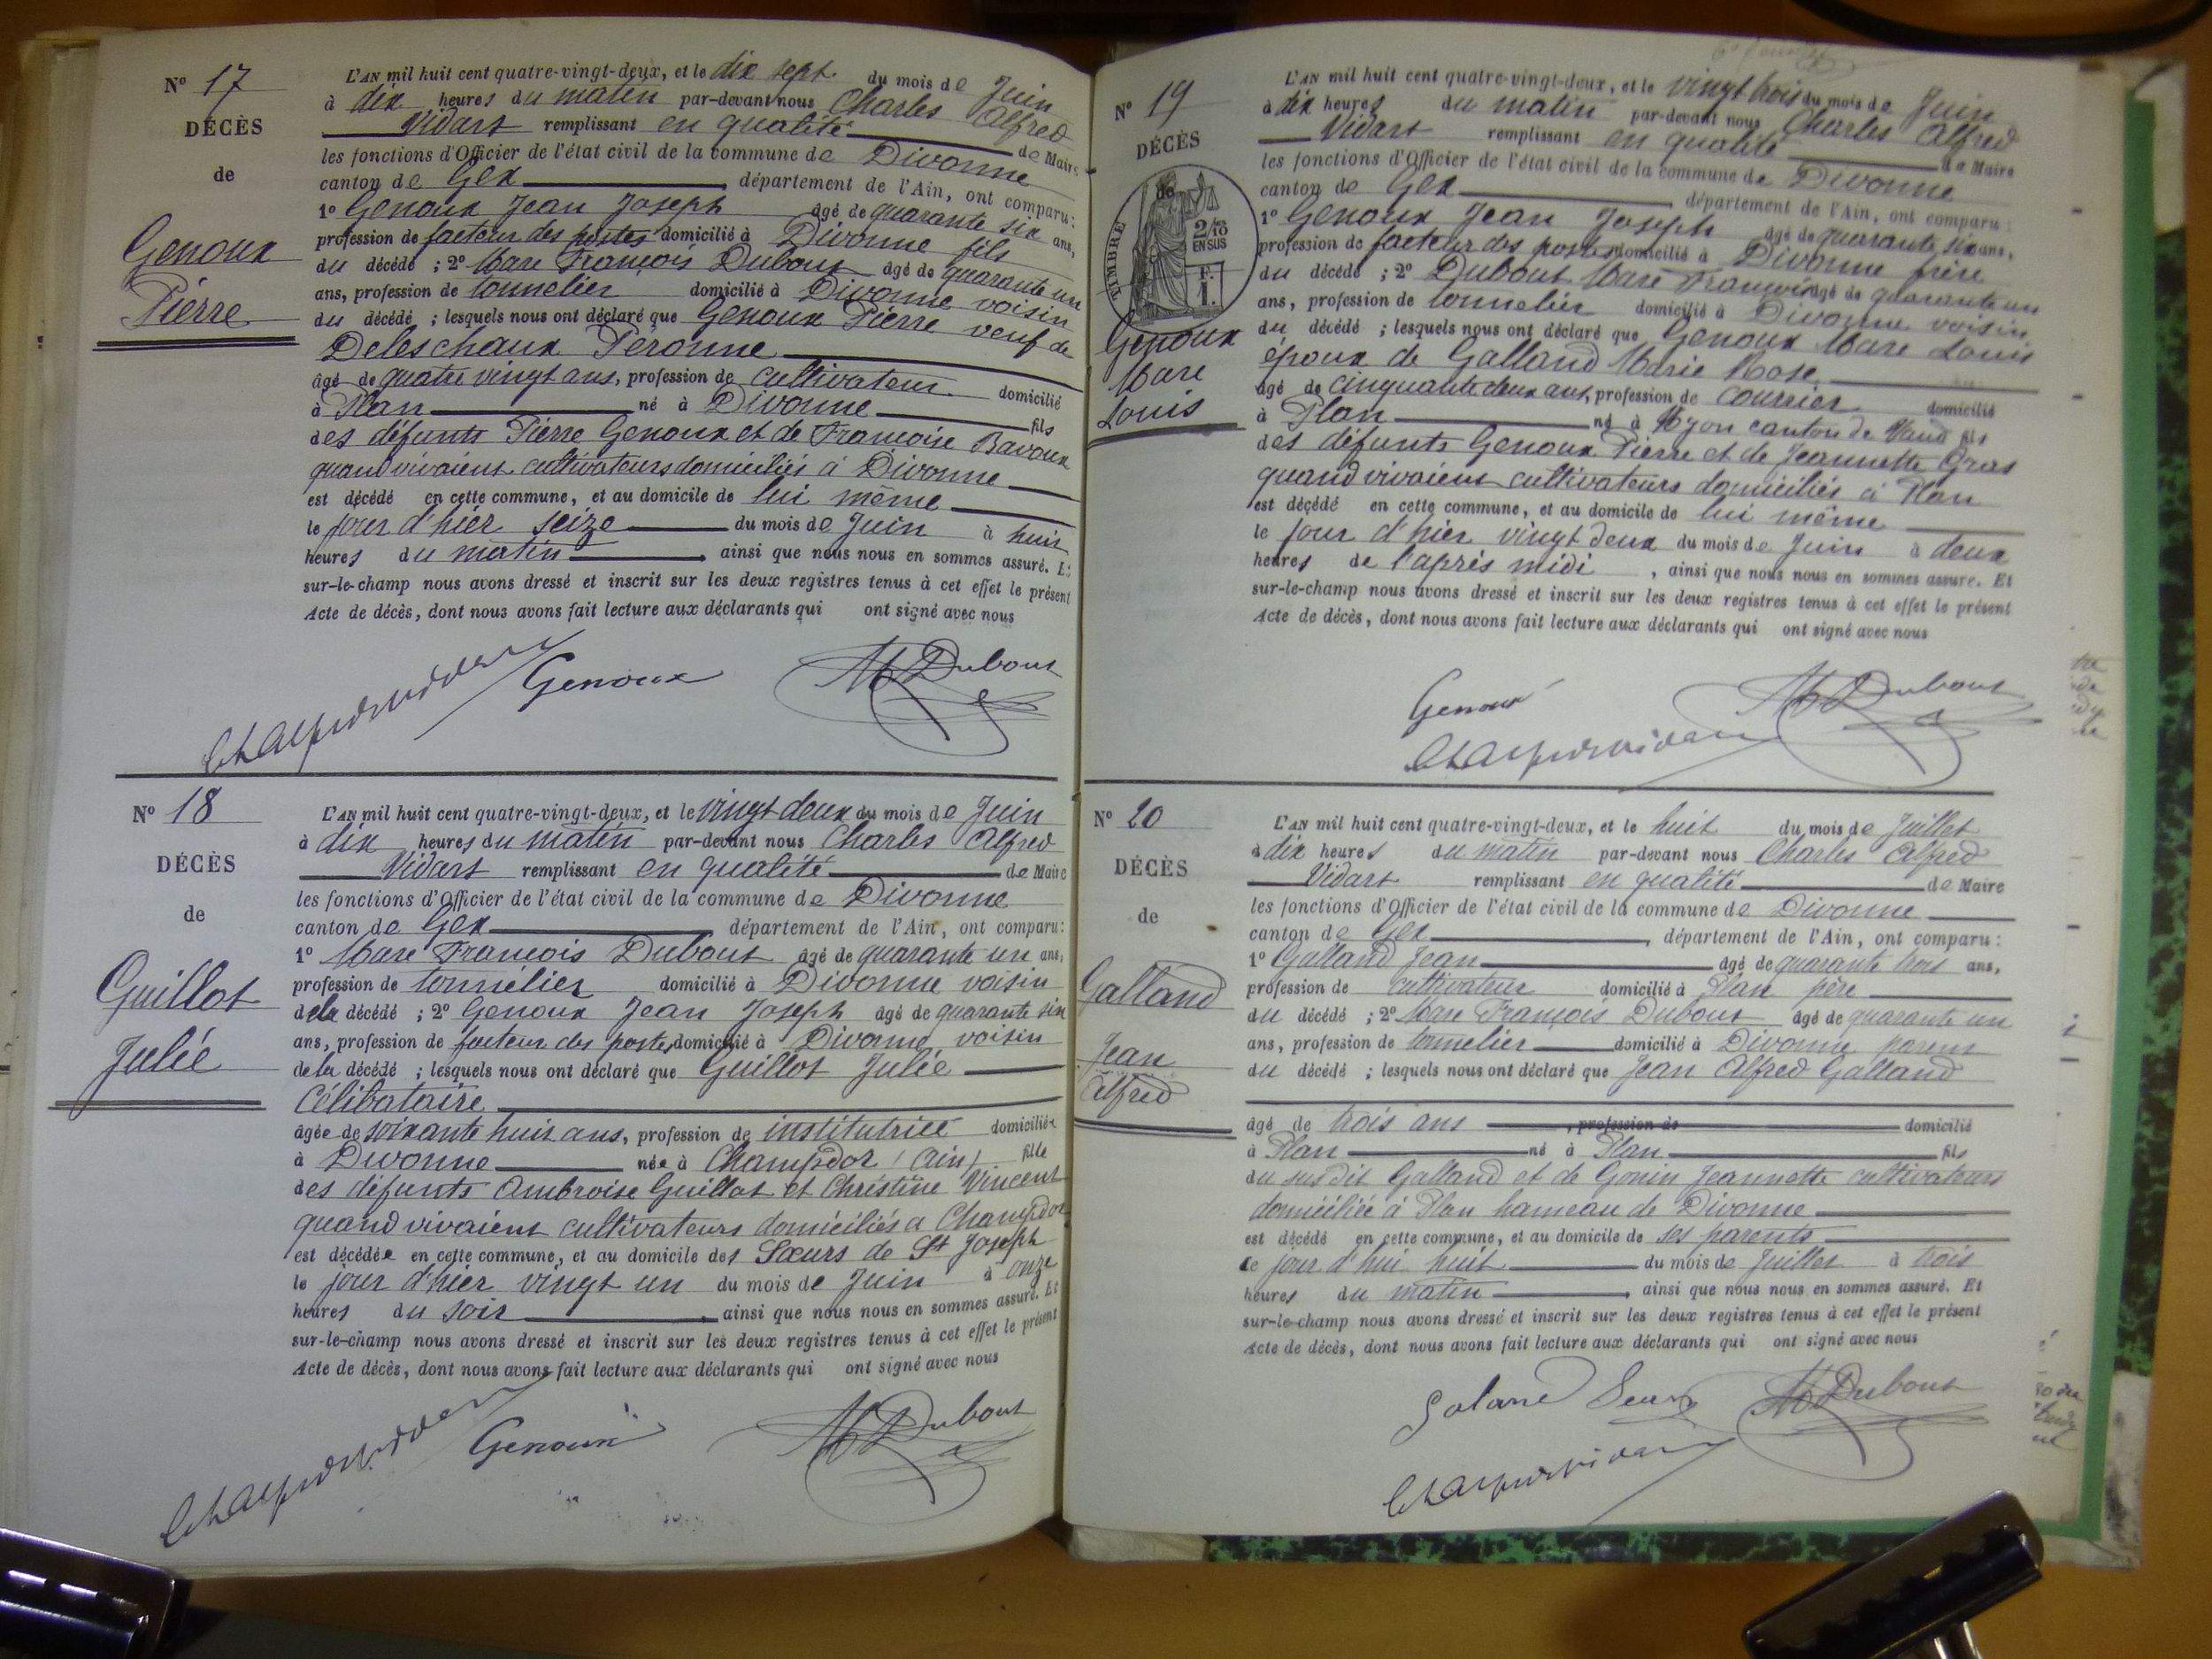 N° 17
DÉCÈS
de
Genoux
Pierre
L'AN mil huit cent quatre-vingt-deux, et le dix sept du mois de Juin
à dix heures du matin par-devant nous Charles Alfred
Vidart remplissant en qualité de Maire
les fonctions d'Officier de l'état civil de la commune de Divonne
canton de Gex département de l'Ain, ont comparu:
1° Genoux Jean Joseph âgé de quarante six ans,
profession de facteur des postes domicilié à Divonne fils
du décédé ; 2° Marc François Dubout âgé de quarante un
ans, profession de tonnelier domicilié à Divonne voisin
du décédé ; lesquels nous ont déclaré que Genoux Pierre veuf de
Deleschaux Péronne
âgé de quatre vingt ans, profession de cultivateur domicilié
à Plan né à Divonne fils
des défunts Pierre Genoux et de Françoise Bavoux
quand vivaient cultivateurs domiciliés à Divonne
est décédé en cette commune, et au domicile de lui même
le jour d'hier seize du mois de Juin à huit
heures du matin, ainsi que nous nous en sommes assuré. Et
sur-le-champ nous avons dressé et inscrit sur les deux registres tenus à cet effet le présent
Acte de décès, dont nous avons fait lecture aux déclarants qui ont signé avec nous
Genoux
M Dubout
N° 18
DÉCÈS
de
Guillot
Julie
L'AN mil huit cent quatre-vingt-deux, et le vingt deux du mois de Juin
à dix heures du matin par-devant nous Charles Alfred
Vidart remplissant en qualité de Maire
les fonctions d'Officier de l'état civil de la commune de Divonne
canton de Gex département de l'Ain, ont comparu:
1° Marc François Dubout âgé de quarante un ans,
profession de tonnelier domicilié à Divonne voisin
de la décédé ; 2° Genoux Jean Joseph âgé de quarante six
ans, profession de facteur des postes domicilié à Divonne voisin
de la décédé ; lesquels nous ont déclaré que Guillot Julie
Célibataire
âgée de soixante huit ans, profession de institutrice domiciliée
à Divonne née à Champdor (Ain) fille
des défunts Ambroise Guillot et Christine Vincent
quand vivaient cultivateurs domiciliés à Champdor
est décédée en cette commune, et au domicile des Sœurs de St Joseph
le jour d'hier vingt un du mois de Juin à onze
heures du soir, ainsi que nous nous en sommes assuré. Et
sur-le-champ nous avons dressé et inscrit sur les deux registres tenus à cet effet le présent
Acte de décès, dont nous avons fait lecture aux déclarants qui ont signé avec nous
Genoux
M Dubout
N° 19
DÉCÈS
de
TIMBRE
2/10
EN SUS
F.
1.
Genoux
Marc
Louis
L'AN mil huit cent quatre-vingt-deux, et le vingt trois du mois de Juin
à dix heures du matin par-devant nous Charles Alfred
Vidart remplissant en qualité de Maire
les fonctions d'Officier de l'état civil de la commune de Divonne
canton de Gex département de l'Ain, ont comparu:
1° Genoux Jean Joseph âgé de quarante six ans,
profession de facteur des postes domicilié à Divonne frère
du décédé ; 2° Dubout Marc François âgé de quarante un
ans, profession de tonnelier domicilié à Divonne voisin
du décédé ; lesquels nous ont déclaré que Genoux Marc Louis
époux de Galland Marie Rose
âgé de cinquante deux ans, profession de courrier domicilié
à Plan né à Nyon canton de Vaud fils
des défunts Genoux Pierre et de Jeannette Gras
quand vivaient cultivateurs domiciliés à Plan
est décédé en cette commune, et au domicile de lui même
le jour d'hier vingt deux du mois de Juin à deux
heures de l'après midi, ainsi que nous nous en sommes assuré. Et
sur-le-champ nous avons dressé et inscrit sur les deux registres tenus à cet effet le présent
Acte de décès, dont nous avons fait lecture aux déclarants qui ont signé avec nous
Genoux
M Dubout
N° 20
DÉCÈS
de
Galland
Jean
Alfred
L'AN mil huit cent quatre-vingt-deux, et le huit du mois de Juillet
à dix heures du matin par-devant nous Charles Alfred
Vidart remplissant en qualité de Maire
les fonctions d'Officier de l'état civil de la commune de Divonne
canton de Gex, département de l'Ain, ont comparu:
1° Galland Jean âgé de quarante trois ans,
profession de cultivateur domicilié à Plan père
du décédé ; 2° Marc François Dubout âgé de quarante un
ans, profession de tonnelier domicilié à Divonne parent
du décédé ; lesquels nous ont déclaré que Jean Alfred Galland
âgé de trois ans, profession de domicilié
à Plan né à Plan fils
du susdit Galland et de Gonin Jeannette cultivateurs
domiciliée à Plan hameau de Divonne
est décédé en cette commune, et au domicile de ses parents
ce jour d'hui huit du mois de Juillet à trois
heures du matin, ainsi que nous nous en sommes assuré. Et
sur-le-champ nous avons dressé et inscrit sur les deux registres tenus à cet effet le présent
Acte de décès, dont nous avons fait lecture aux déclarants qui ont signé avec nous
M Dubout